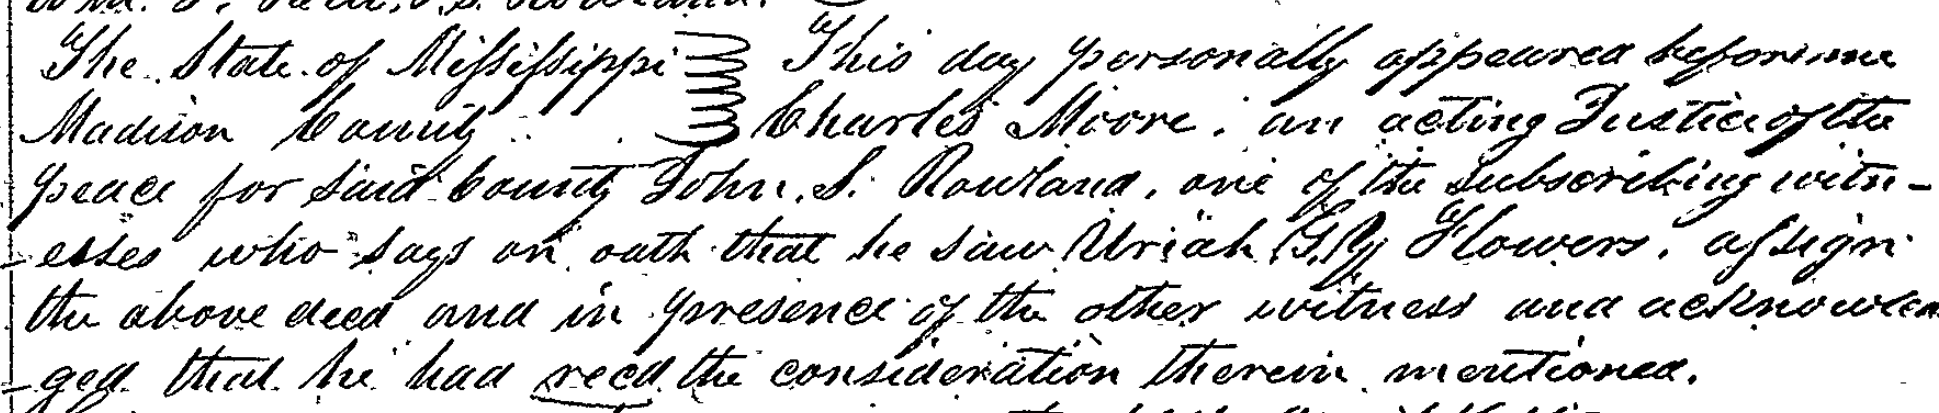 The State of Mississippi } This day personally appeared before me
Madison County } Charles Moore, an acting Justice of the
peace for said County John. S. Rowland, one of the subscribing witn-
-esses who says on oath that he saw Uriah G. Y. Flowers, assign
the above deed and in presence of the other witness and acknowled
-ged that he had recd the consideration therein mentioned.